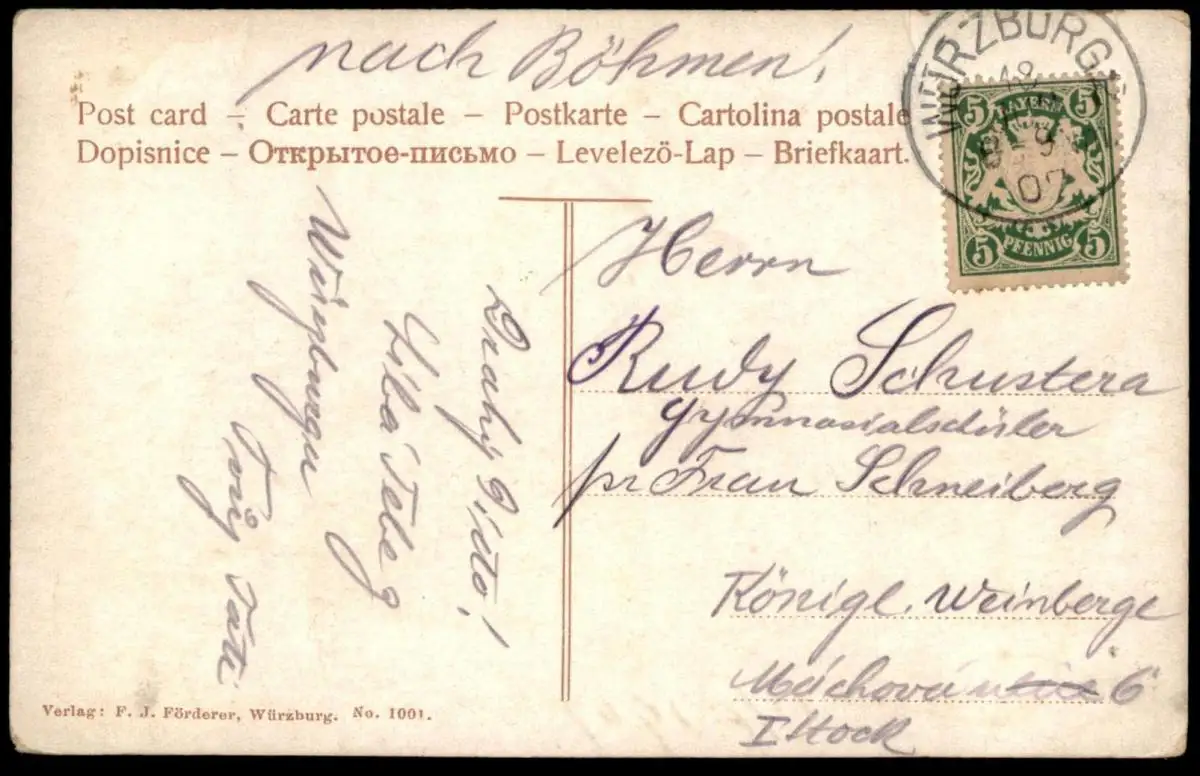 nach Böhmen!
Post card – Carte postale – Postkarte – Cartolina postale
Dopisnice – Открытое-письмо – Levelező-Lap – Briefkaart.
WÜRZBURG
18
8-9
07
5 5
BAYERN
PFENNIG
5 5
Herrn
Rudy Schustera
Gymnasialschüler
pr Frau Schneiberg
Königl. Weinberge
Máchova 6
I Stock
Drahý
Líbá Tebe
Würzburgu
Tvůj Táta
Verlag: F. J. Förderer, Würzburg. No. 1001.